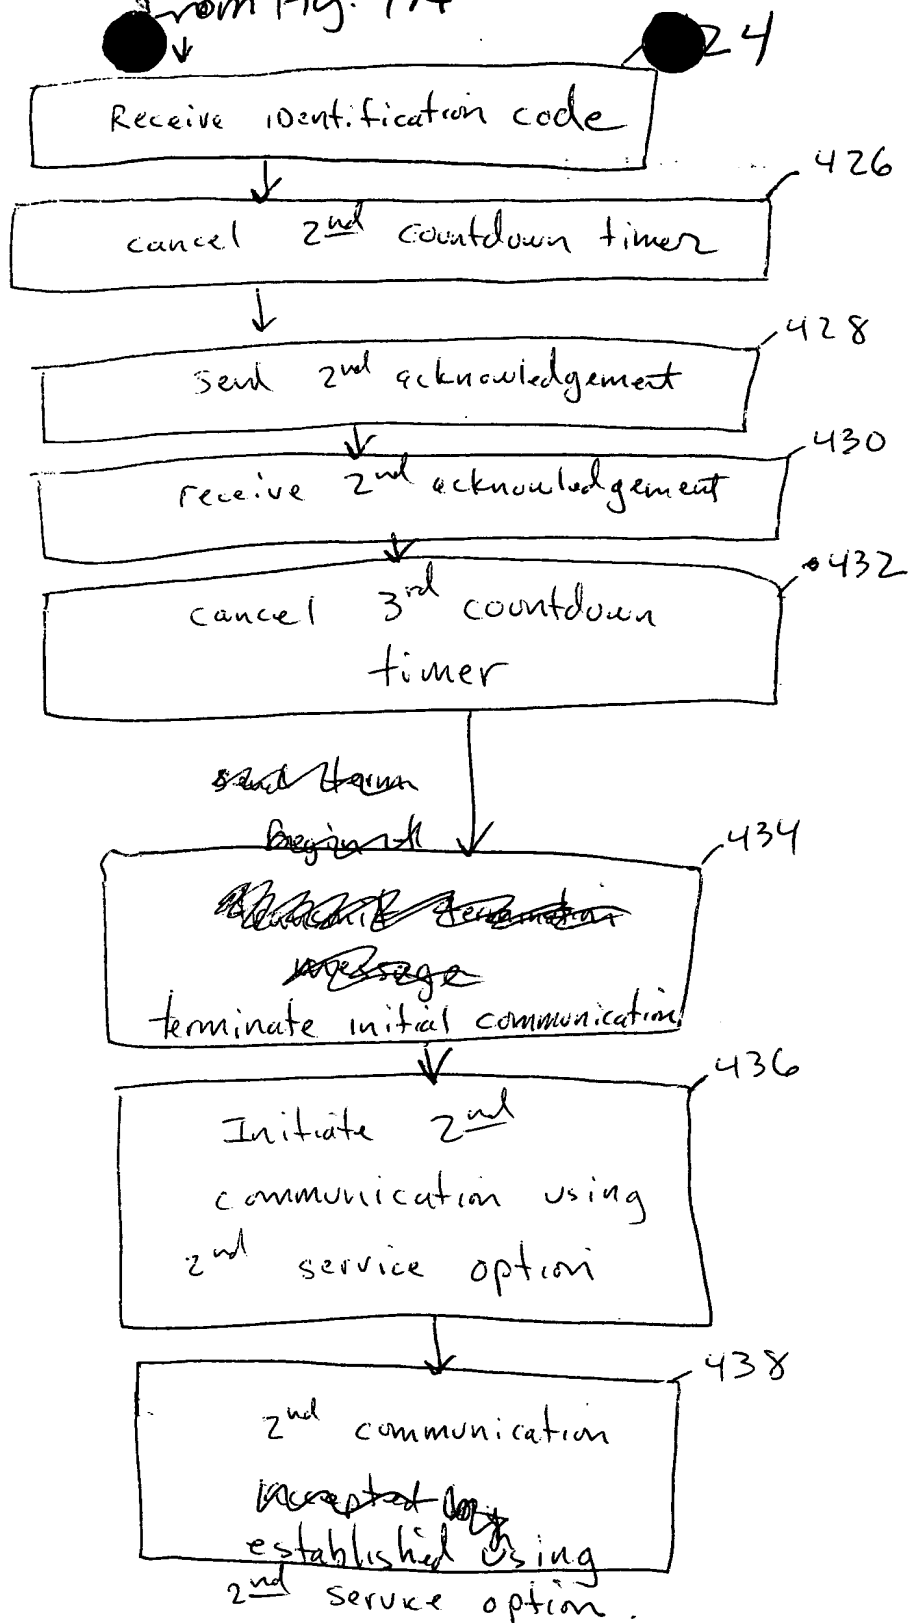 From Fig.
24
Receive identification code
426
cancel 2nd countdown timer
428
send 2nd acknowledgement
430
receive 2nd acknowledgement
432
cancel 3rd countdown
timer
434
terminate initial communication
436
Initiate 2nd
communication using
2nd service option
438
2nd communication
established using
2nd service option.